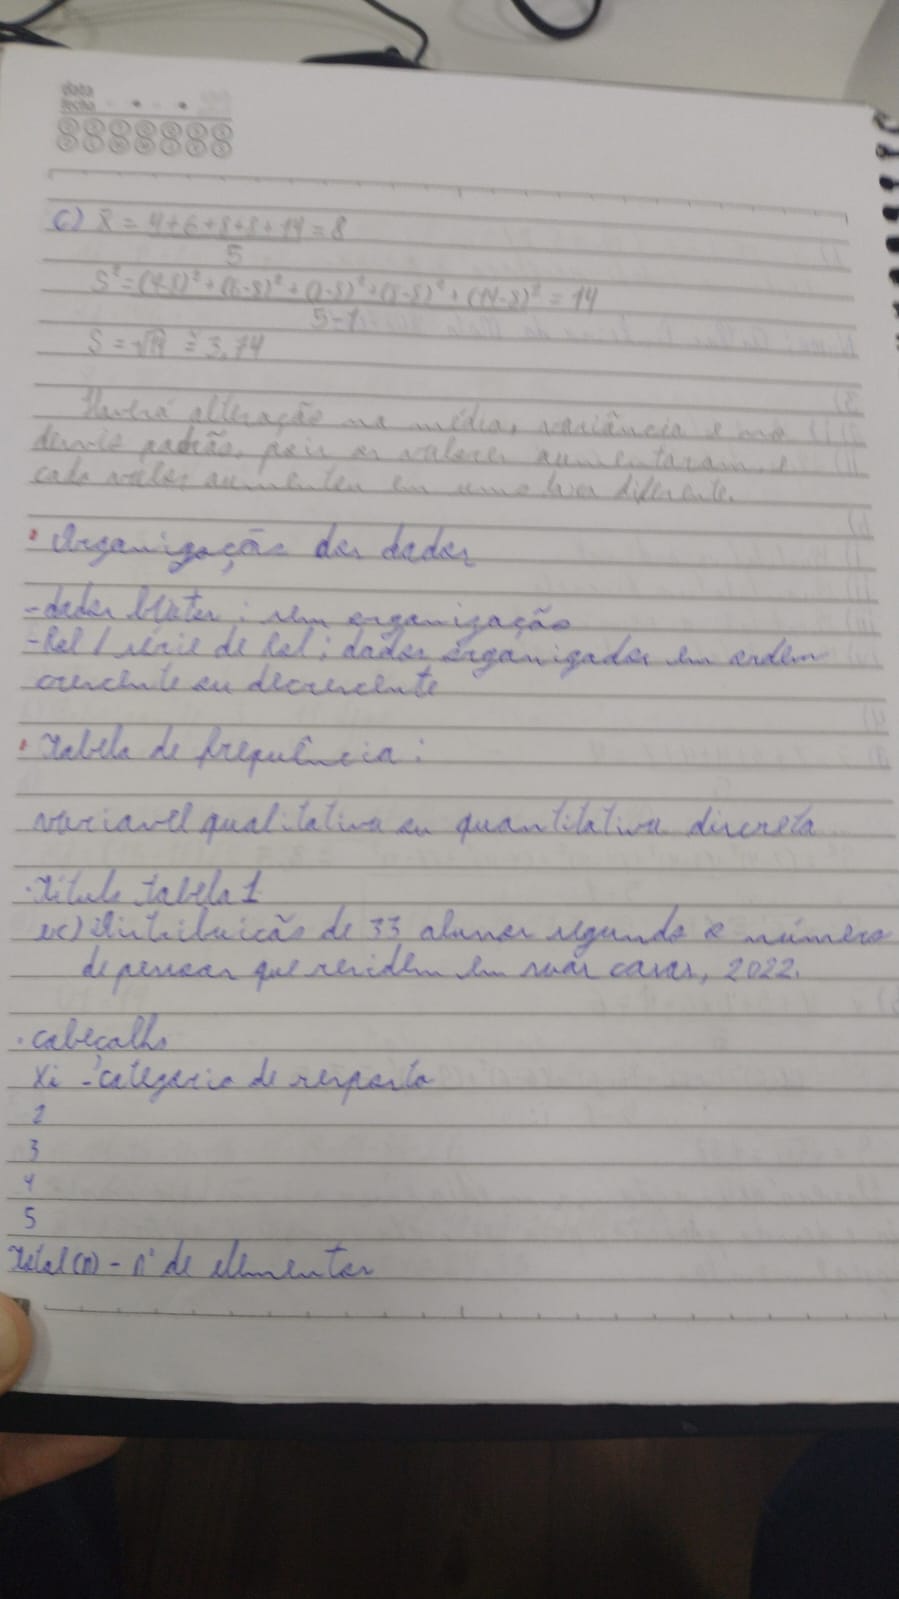 data
fecha
c) x̄ = 4+6+8+8+14 = 8
5
S² = (4-8)² + (6-8)² + (8-8)² + (8-8)² + (14-8)² = 14
5-1
S = √14 ≅ 3,74
Haverá alteração na média, variância e no
desvio padrão, pois os valores aumentaram, e
cada valor aumentou em uma diferente.
• Organização dos dados
- dados brutos: sem organização
- Rol / série de Rol: dados organizados em ordem
crescente ou decrescente
• Tabela de frequência:
variavel qualitativa ou quantitativa discreta
· Título tabela 1
ex) Distribuicão de 33 alunos segundo o número
de pessoas que residem em suas casas, 2022.
· cabeçalho
Xi - categoria de resposta
2
3
4
5
Total (n) - nº de elementos